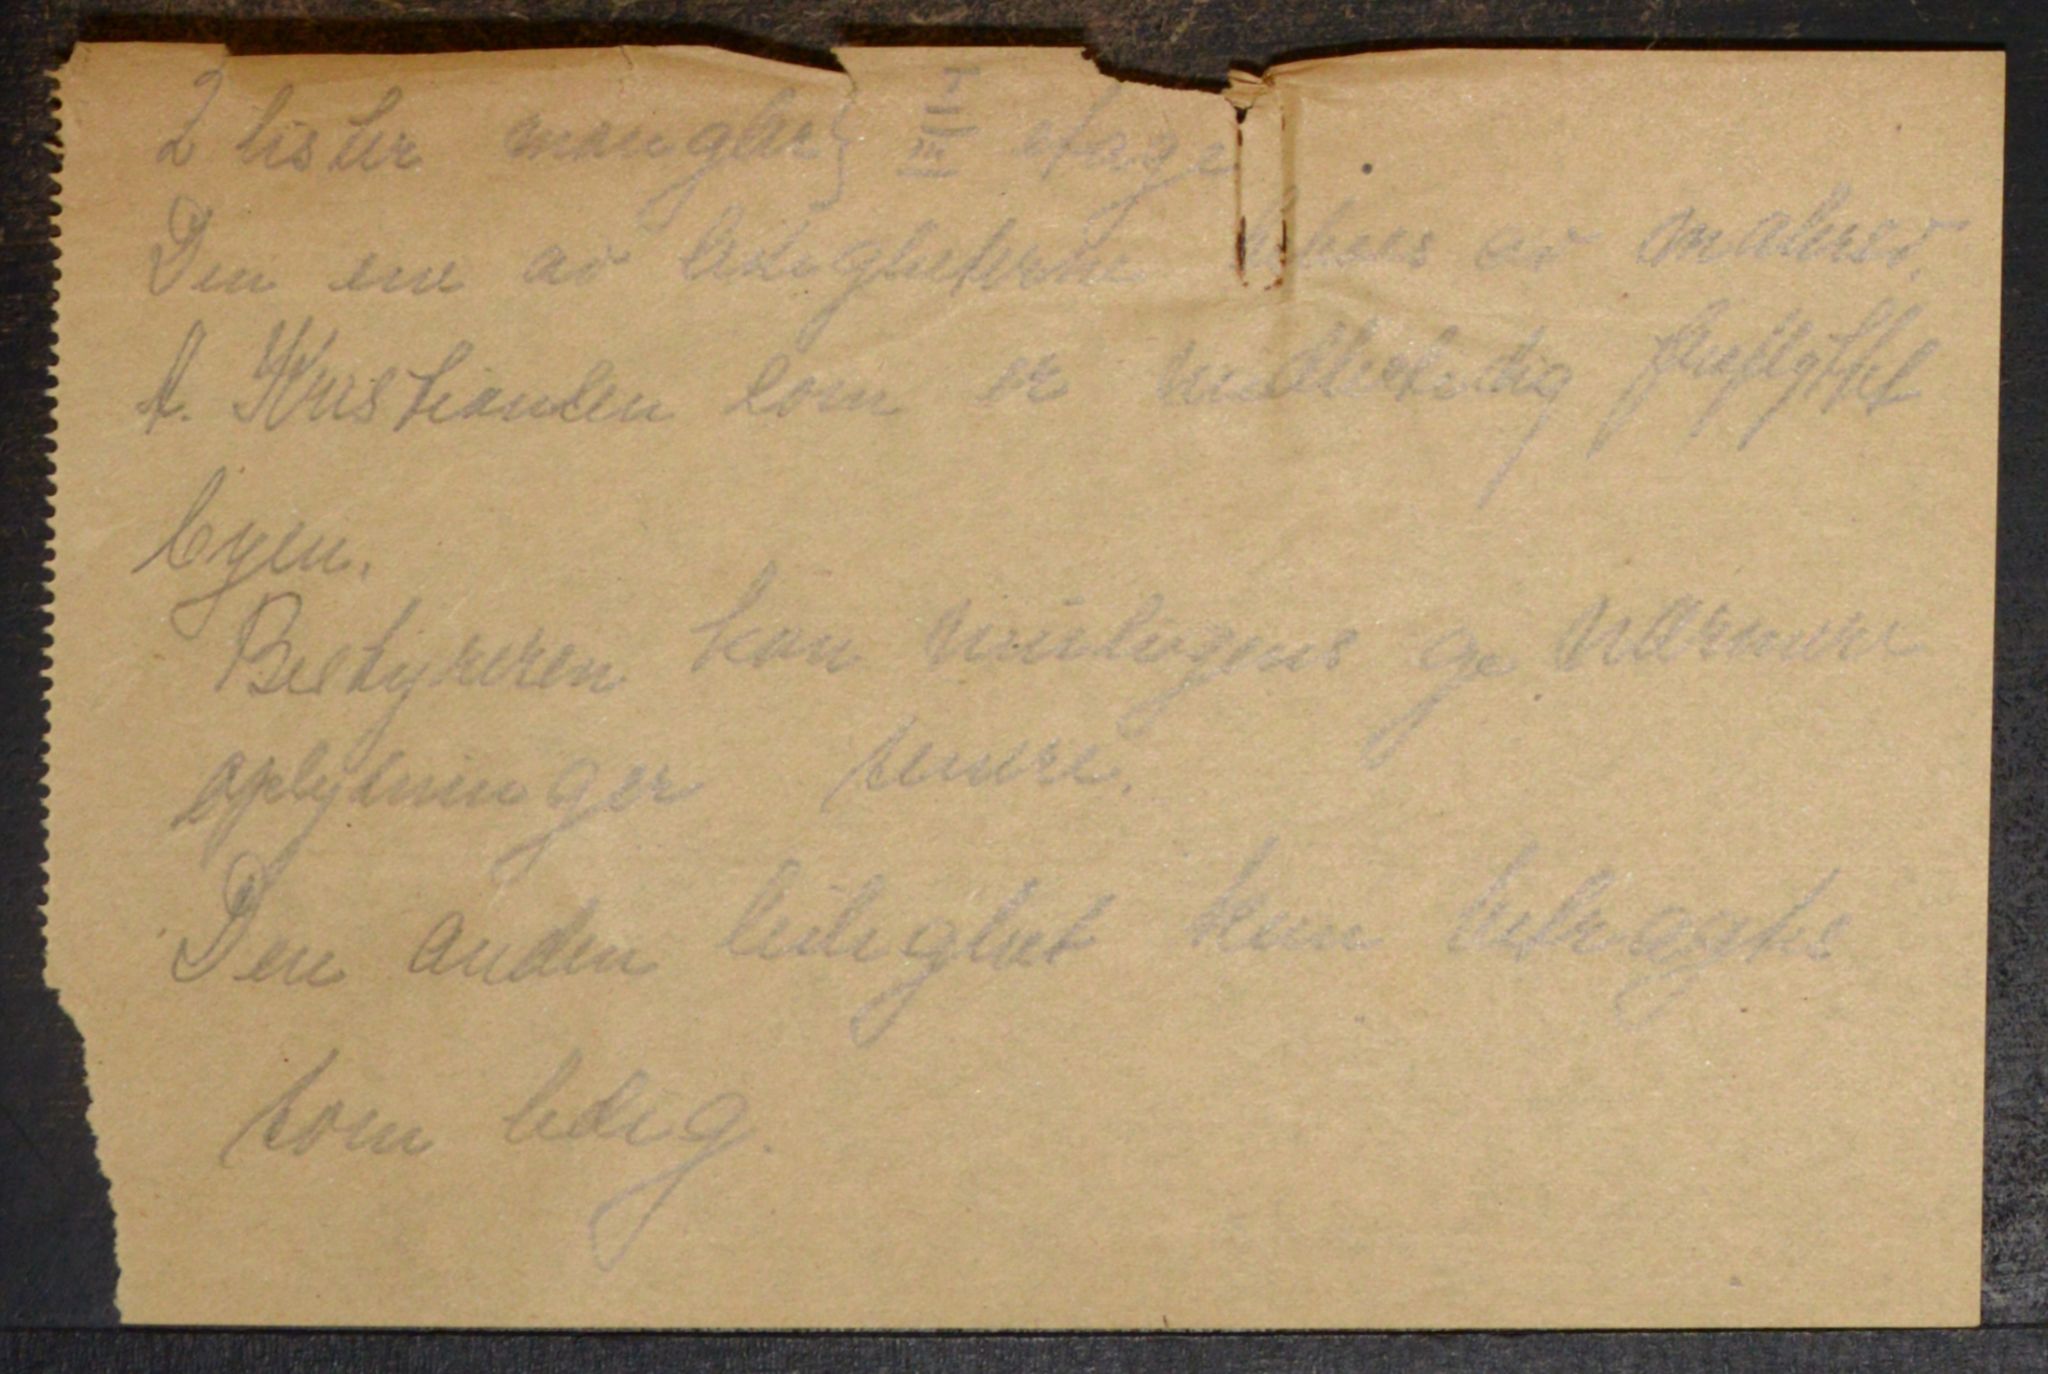 2 lister mangler } I III etage
Den ene av leiligheterne av malersv.
A. Kristiansen som er midlertidig fraflyttet
byen.
Bestyreren kan muligens gi nærmere
oplysninger senere.
Den anden leilighet kan betragtes
som ledig.